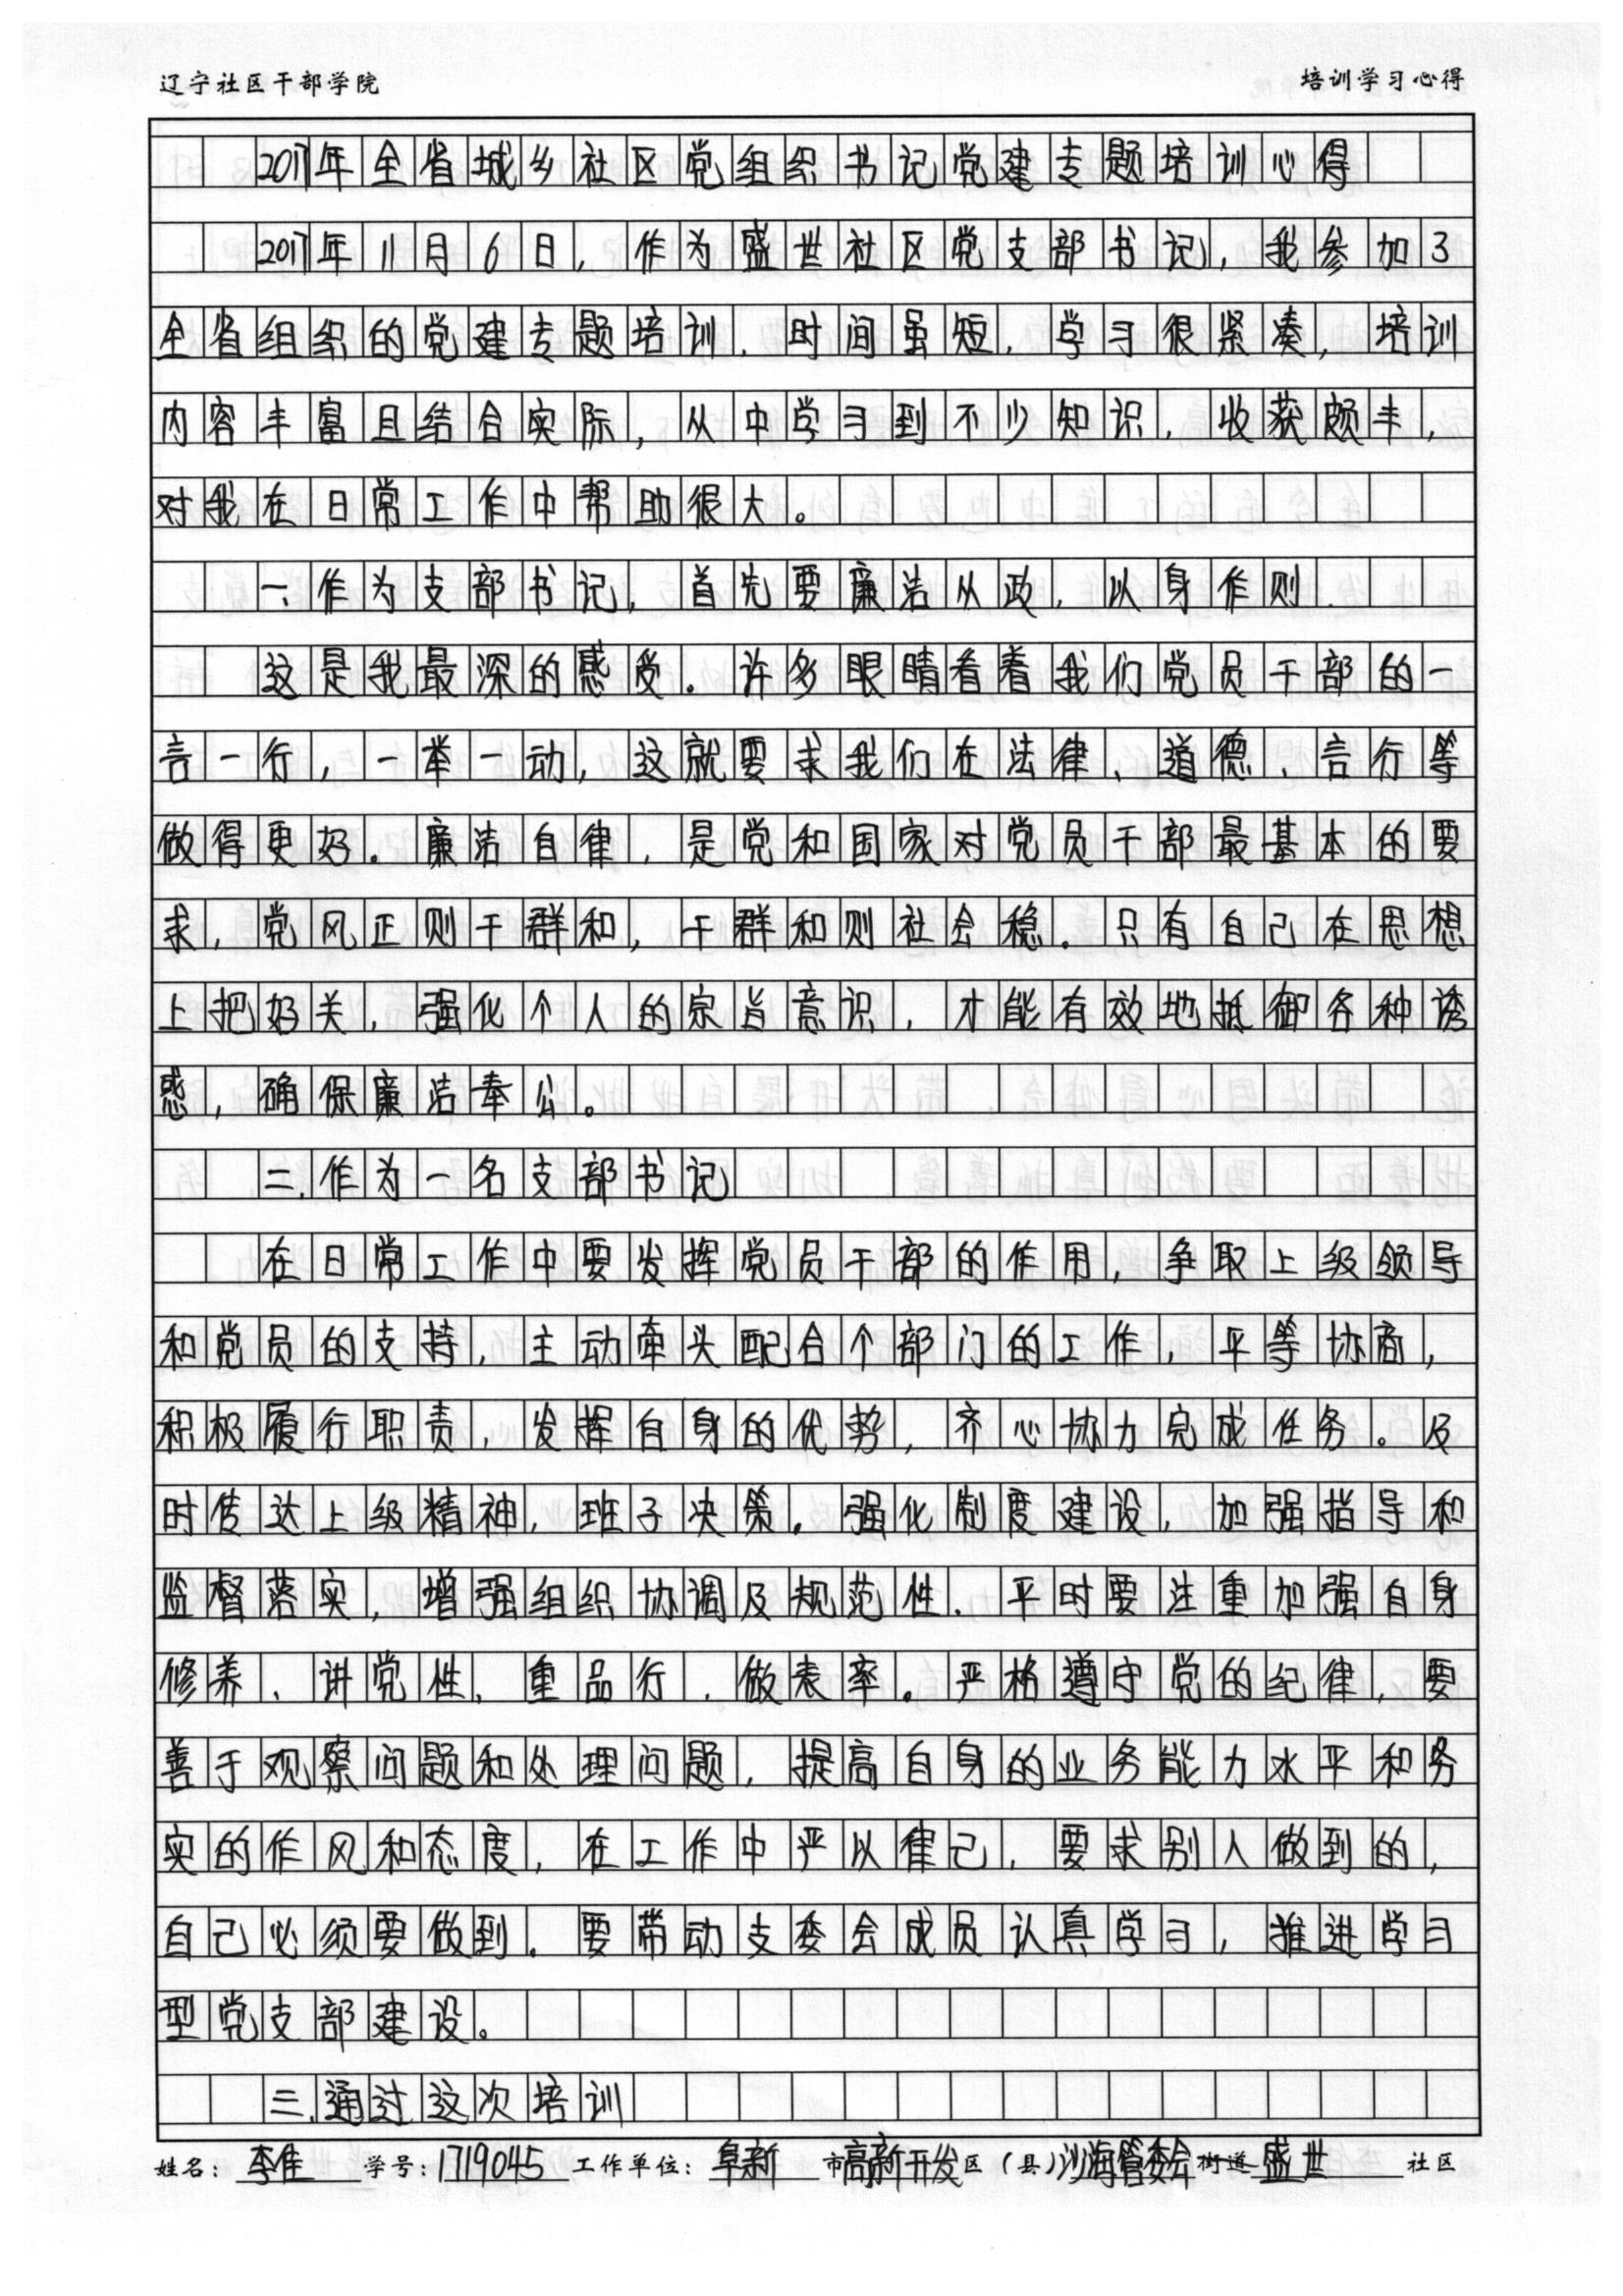 辽宁社区干部学院 培训学习心得
2017年全省城乡社区党组织书记党建专题培训心得
2017年11月6日，作为盛世社区党支部书记，我参加了
全省组织的党建专题培训，时间虽短，学习很紧凑，培训
内容丰富且结合实际，从中学习到不少知识，收获颇丰，
对我在日常工作中帮助很大。
一、作为支部书记，首先要廉洁从政，以身作则．
这是我最深的感受．许多眼睛看着我们党员干部的
言一行，一举一动，这就要求我们在法律、道德、言行等
做得更好。廉洁自律，是党和国家对党员干部最基本的要
求，党风正则干群和，干群和则社会稳。只有自己在思想
上把好关，强化个人的宗旨意识，才能有效地抵御各种诱
惑，确保廉洁奉公。
二．作为一名支部书记
在日常工作中要发挥党员干部的作用，争取上级领导
和党员的支持，主动牵头配合个部门的工作，平等协商，
积极履行职责，发挥自身的优势，齐心协力完成任务。及
时传达上级精神，班子决策．强化制度建设，加强指导和
监督落实，增强组织协调及规范性．平时要注重加强自身
修养、讲党性、重品行、做表率。严格遵守党的纪律，要
善于观察问题和处理问题，提高自身的业务能力水平和务
实的作风和态度，在工作中严以律己，要求别人做到的，
自己必须要做到．要带动支委会成员认真学习，推进学习
型党支部建设。
三．通过这次培训
姓名：李佳 学号：1719045 工作单位：阜新 市 高新开发区（县）沙海管委会 街道 盛世 社区